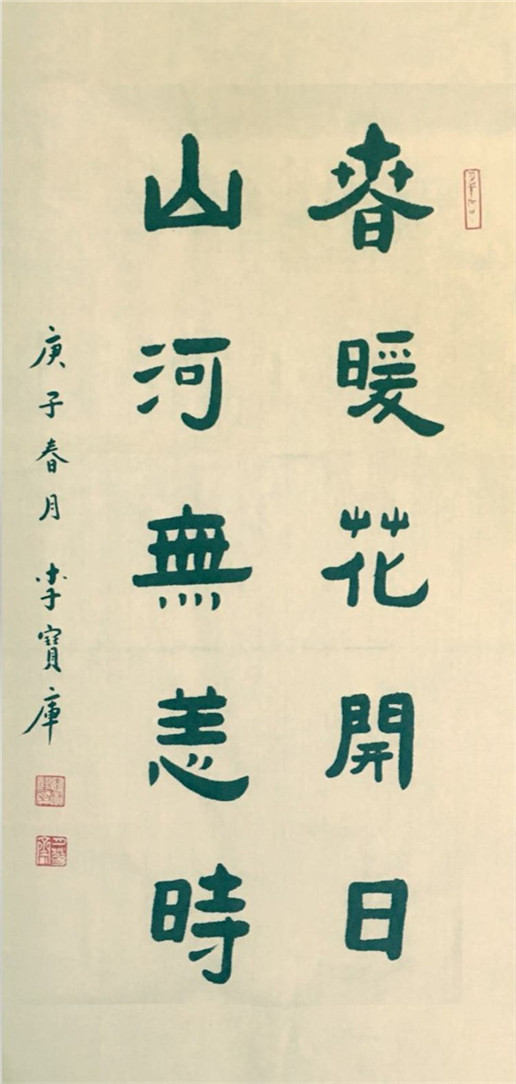 春暖花開日
山河無恙時
庚子春月 李寶庫